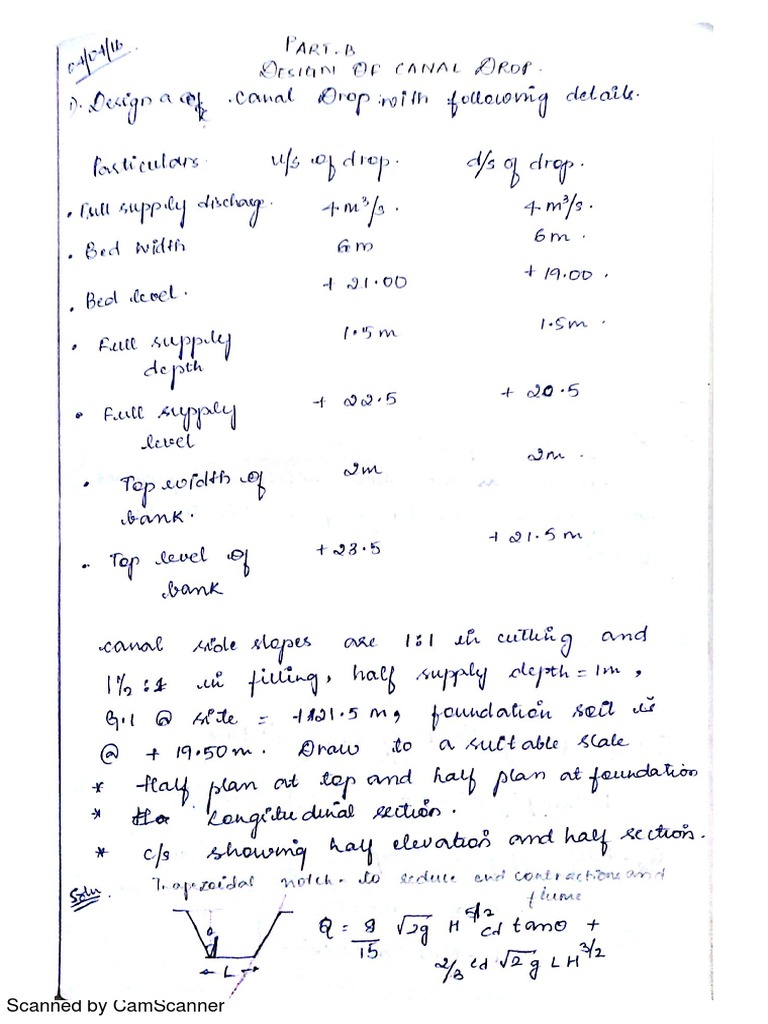 04/04/16
PART.B
DESIGN OF CANAL DROP.
1). Design a of canal Drop with following details.
Particulars. u/s of drop. d/s of drop.
• Full supply discharge. 4 m³/s. 4 m³/s.
• Bed width 6m 6m.
• Bed level. + 21.00 + 19.00.
• Full supply depth 1.5m 1.5m.
• Full supply level + 22.5 + 20.5
• Top width of bank. 2m 2m.
• Top level of bank +23.5 + 21.5m
canal side slopes are 1:1 in cutting and
1½:1 in filling, half supply depth = 1m,
G.l @ site = +21.5 m, foundation soil is
@ + 19.50m. Draw to a suitable scale
* Half plan at top and half plan at foundation
* Longitudinal section.
* c/s showing half elevation and half section.
Soln. Trapezoidal notch - to reduce end contractions and
flume
Q = 8/15 √2g H^5/2 cd tanθ +
2/3 cd √2g L H^3/2
θ
← L →
Scanned by CamScanner